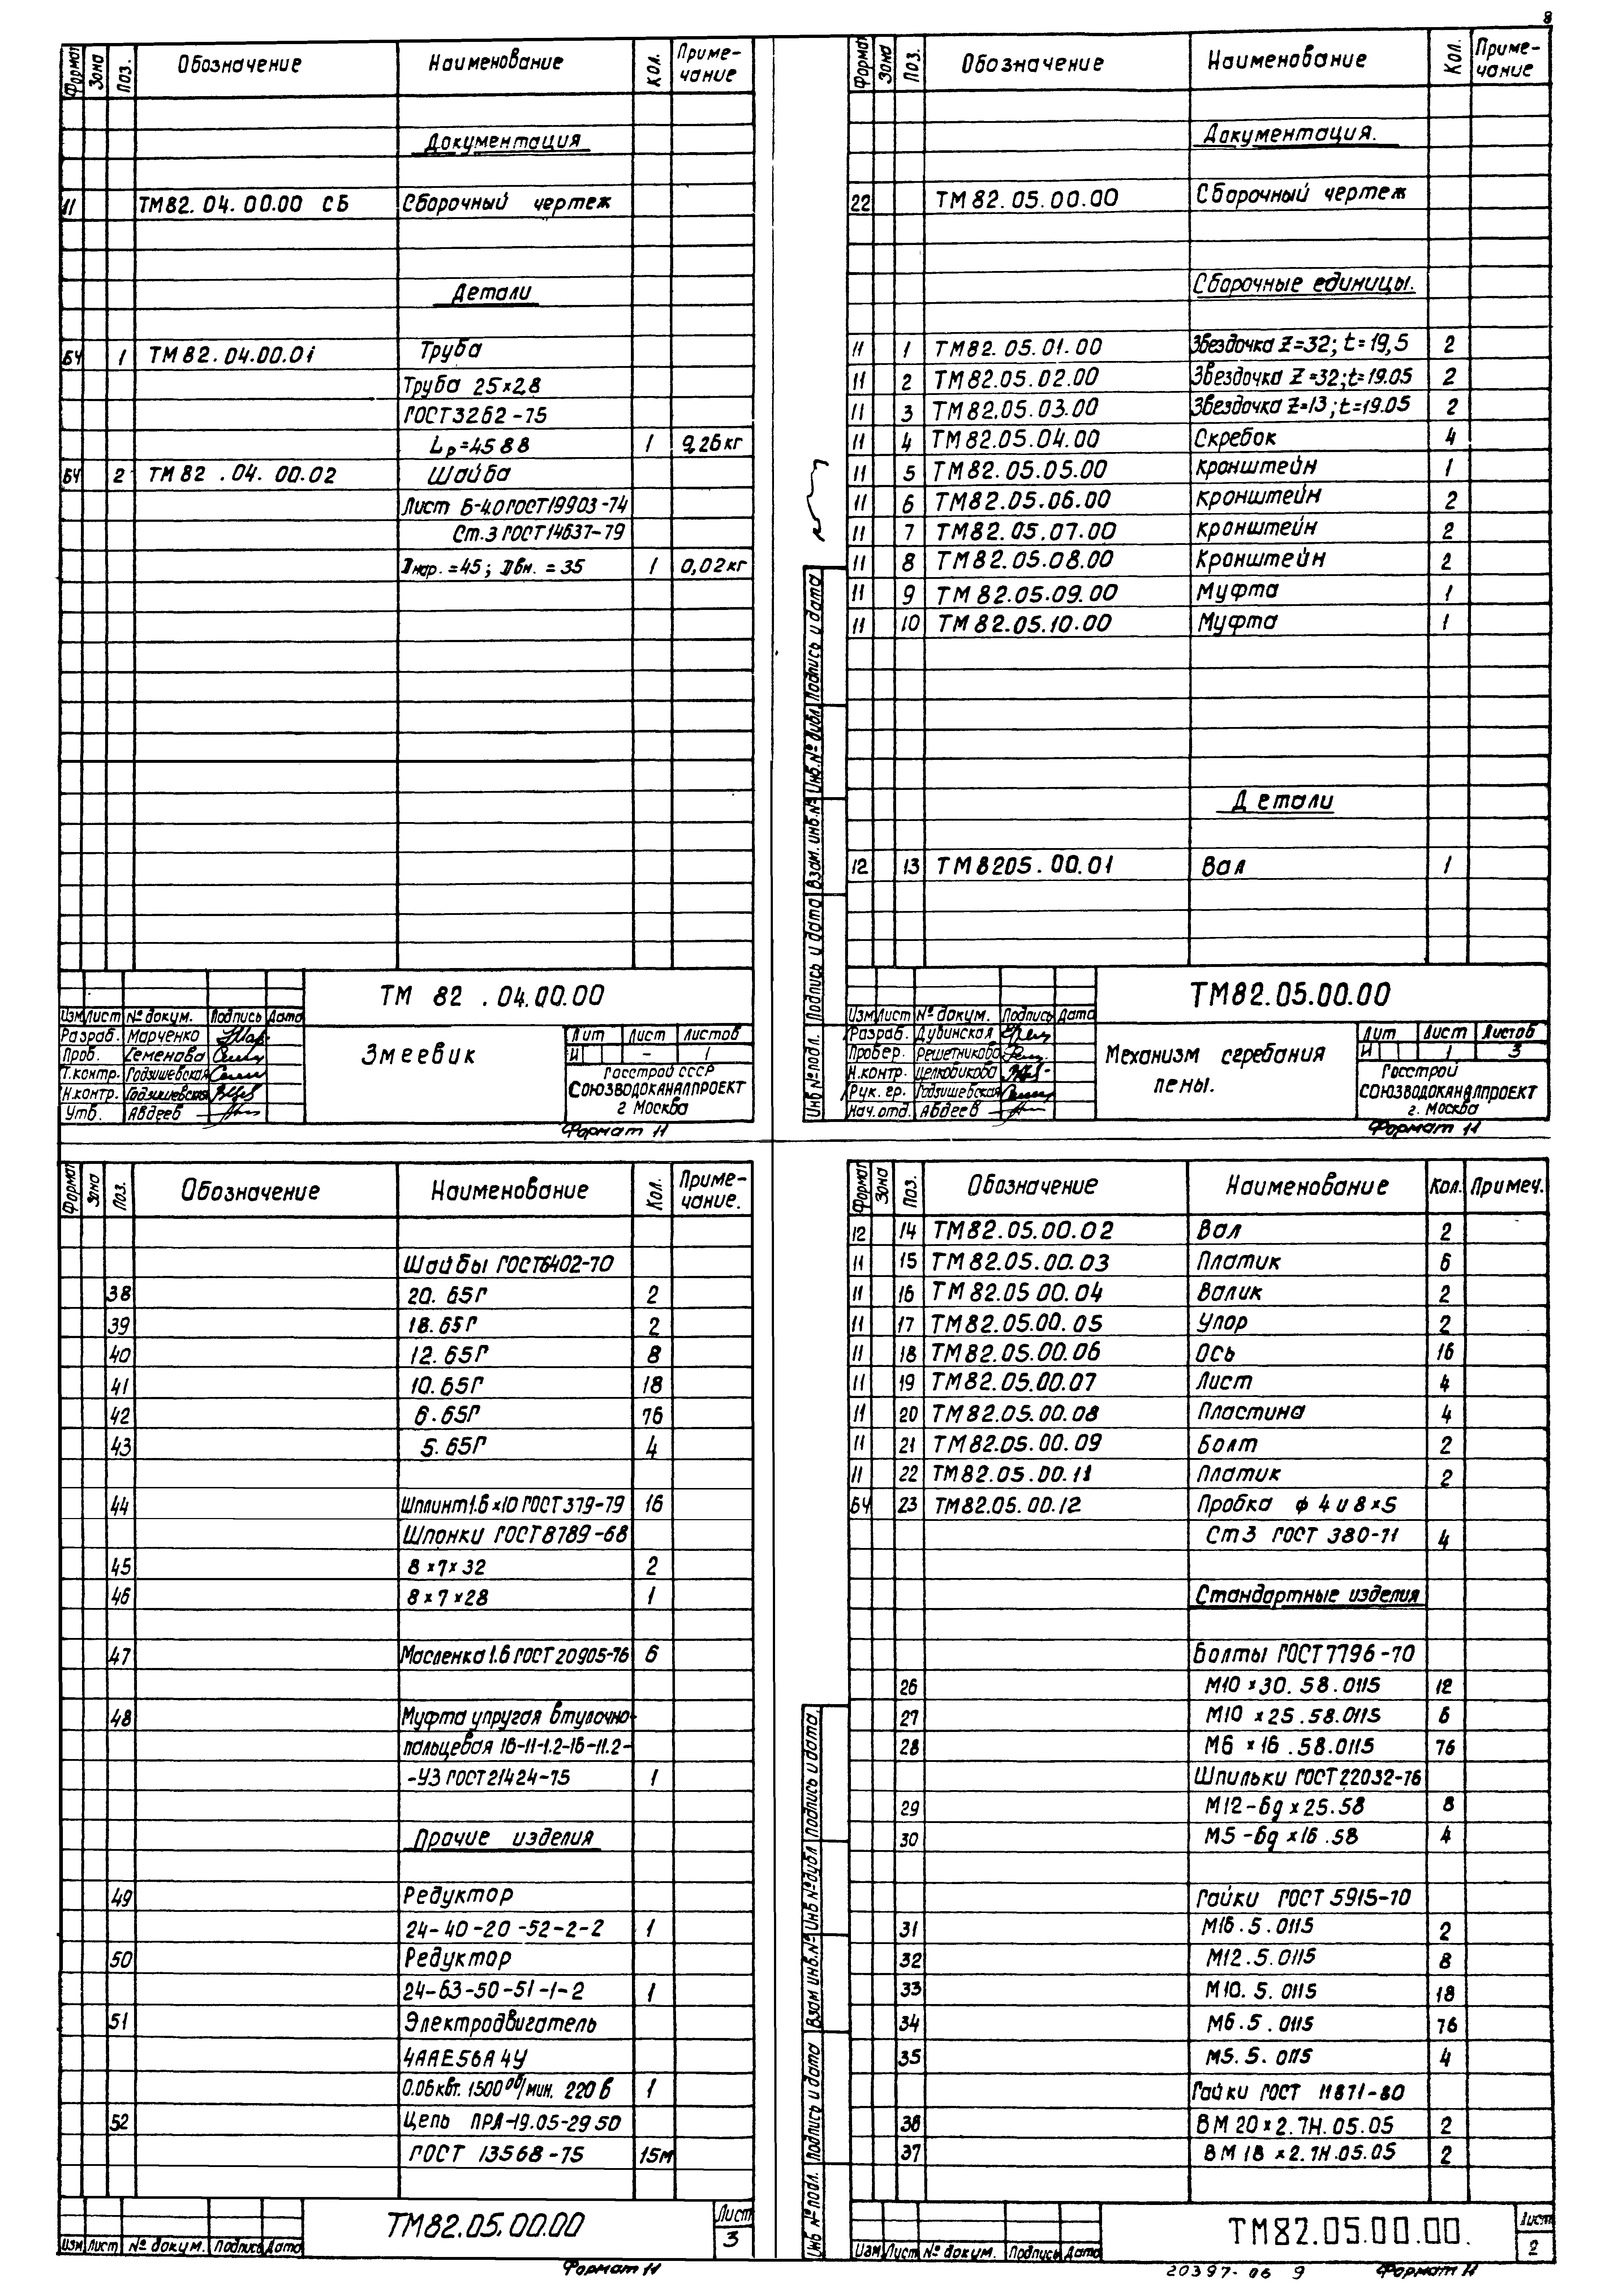 8
Формат Зона Поз. Обозначение Наименование Кол. Приме-
чание
Документация
11 ТМ82.04.00.00 СБ Сборочный чертеж
Детали
БЧ 1 ТМ82.04.00.01 Труба
Труба 25×2,8
ГОСТ3262-75
Lр=4588 1 9,26кг
БЧ 2 ТМ82.04.00.02 Шайба
Лист Б-4.0 ГОСТ19903-74
Ст.3 ГОСТ14637-79
Dнар.=45; Dвн.=35 1 0,02кг
ТМ 82.04.00.00
Изм Лист № докум. Подпись Дата
Разраб. Марченко
Пров. Семенова
Т.контр. Годзишевская
Н.контр. Годзишевская
Утв. Авдеев
Змеевик
Лит Лист Листов
И - 1
Госстрой СССР
СОЮЗВОДОКАНАЛПРОЕКТ
г Москва
Формат 11
Формат Зона Поз. Обозначение Наименование Кол. Приме-
чание
Документация.
22 ТМ82.05.00.00 Сборочный чертеж
Сборочные единицы.
11 1 ТМ82.05.01.00 Звездочка Z=32; t=19,5 2
11 2 ТМ82.05.02.00 Звездочка Z=32; t=19.05 2
11 3 ТМ82.05.03.00 Звездочка Z=13; t=19.05 2
11 4 ТМ82.05.04.00 Скребок 4
11 5 ТМ82.05.05.00 Кронштейн 1
11 6 ТМ82.05.06.00 Кронштейн 2
11 7 ТМ82.05.07.00 Кронштейн 2
11 8 ТМ82.05.08.00 Кронштейн 2
11 9 ТМ82.05.09.00 Муфта 1
11 10 ТМ82.05.10.00 Муфта 1
Детали
12 13 ТМ8205.00.01 Вал 1
Инв № подл. Подпись и дата Взам. инв.№ Инв.№ дубл. Подпись и дата
ТМ82.05.00.00
Изм Лист № докум. Подпись Дата
Разраб. Дубинская
Провер. Решетникова
Н.контр. Целковикова
Рук. гр. Годзишевская
Нач.отд. Авдеев
Механизм сгребания
пены.
Лит Лист Листов
И 1 3
Госстрой
СОЮЗВОДОКАНАЛПРОЕКТ
г. Москва
Формат 11
Формат Зона Поз. Обозначение Наименование Кол. Приме-
чание.
Шайбы ГОСТ6402-70
38 20.65Г 2
39 18.65Г 2
40 12.65Г 8
41 10.65Г 18
42 6.65Г 76
43 5.65Г 4
44 Шплинт1.6×10 ГОСТ379-79 16
Шпонки ГОСТ8789-68
45 8×7×32 2
46 8×7×28 1
47 Масленка1.6 ГОСТ20905-76 6
48 Муфта упругая втулочно-
пальцевая 16-11-1.2-16-11.2-
-У3 ГОСТ21424-75 1
Прочие изделия
49 Редуктор
24-40-20-52-2-2 1
50 Редуктор
24-63-50-51-1-2 1
51 Электродвигатель
4ААЕ56А4У
0.06квт. 1500 об/мин. 220в 1
52 Цепь ПРЛ-19.05-2950
ГОСТ 13568-75 15м
ТМ82.05.00.00
Лист
3
Изм Лист № докум. Подпись Дата
Формат 11
Формат Зона Поз. Обозначение Наименование Кол. Примеч.
12 14 ТМ82.05.00.02 Вал 2
11 15 ТМ82.05.00.03 Платик 6
11 16 ТМ82.05.00.04 Валик 2
11 17 ТМ82.05.00.05 Упор 2
11 18 ТМ82.05.00.06 Ось 16
11 19 ТМ82.05.00.07 Лист 4
11 20 ТМ82.05.00.08 Пластина 4
11 21 ТМ82.05.00.09 Болт 2
11 22 ТМ82.05.00.11 Платик 2
БЧ 23 ТМ82.05.00.12 Пробка ф 4 и 8×5
Ст3 ГОСТ 380-71 4
Стандартные изделия
Болты ГОСТ7796-70
26 М10×30.58.0115 12
27 М10×25.58.0115 6
28 М6×16.58.0115 76
Шпильки ГОСТ22032-76
29 М12-6g×25.58 8
30 М5-6g×16.58 4
Гайки ГОСТ 5915-70
31 М16.5.0115 2
32 М12.5.0115 8
33 М10.5.0115 18
34 М6.5.0115 76
35 М5.5.0115 4
Гайки ГОСТ 11871-80
36 ВМ20×2.7Н.05.05 2
37 ВМ18×2.7Н.05.05 2
Инв № подл. Подпись и дата Взам инв.№ Инв № дубл Подпись и дата.
ТМ82.05.00.00.
Лист
2
Изм Лист № докум. Подпись Дата
20397-06 9 Формат 11